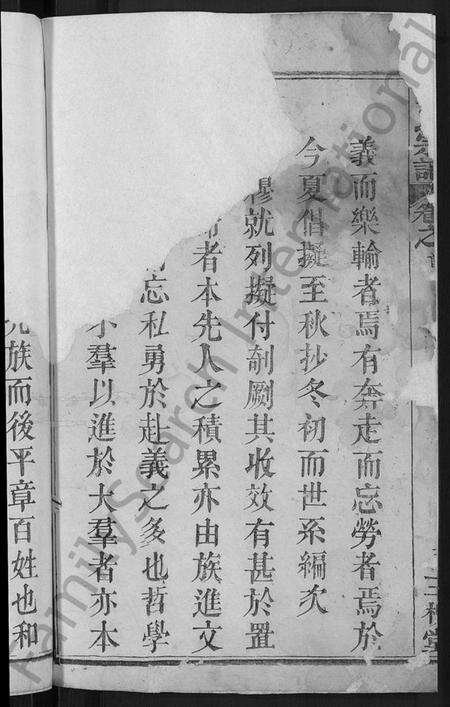 義而樂輸者焉有奔走而忘勞者焉於
今夏倡擬至秋抄冬初而世系編次
穆就列擬付剞劂其收效有甚於置
者本先人之積累亦由族進文
忘私勇於赴義之多也哲學
小羣以進於大羣者亦本
九族而後平章百姓也和
宗譜 卷之
三槐堂
FamilySearch International